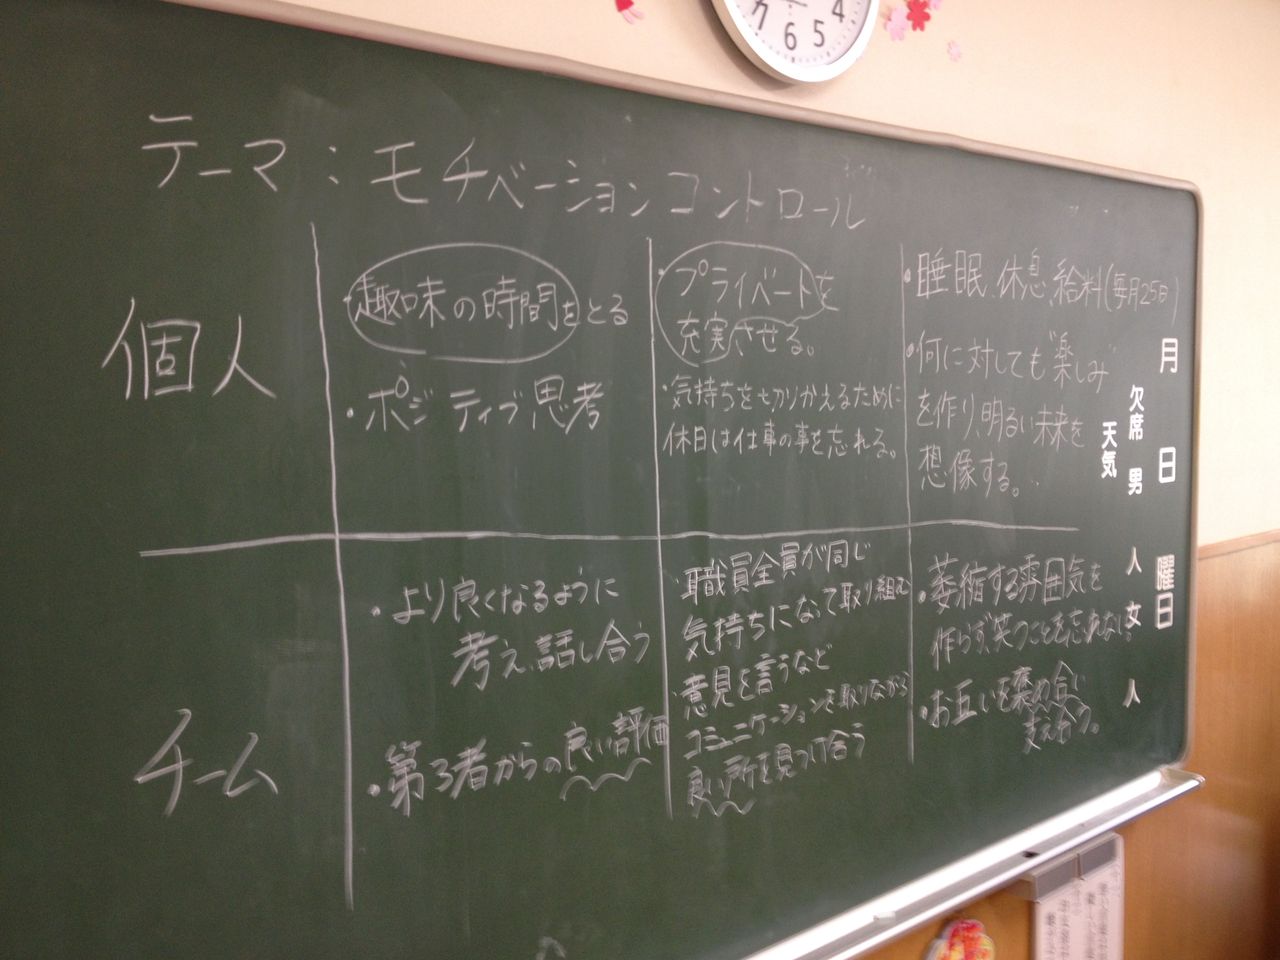 7 6 5 4
テーマ：モチベーションコントロール
個人
・趣味の時間をとる
・ポジティブ思考
・プライベートを
充実させる。
・気持ちを切りかえるために
休日は仕事の事を忘れる。
・睡眠、休息、給料(毎月25日)
・何に対しても“楽しみ”
を作り、明るい未来を
想像する。
チーム
・より良くなるように
考え、話し合う
・第3者からの良い評価
・職員全員が同じ
気持ちになって取り組む
・意見を言うなど
コミュニケーションを取りながら
良い所を見つけ合う
・萎縮する雰囲気を
作らず、笑うことを忘れない。
・お互いを褒め合い
支え合う。
月 日 曜日
欠席 男 人 女 人
天気